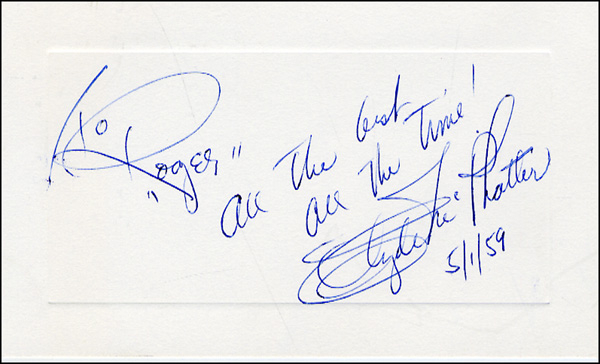 To
"Roger"
All The best
All The Time!
Clyde McPhatter
5/1/59